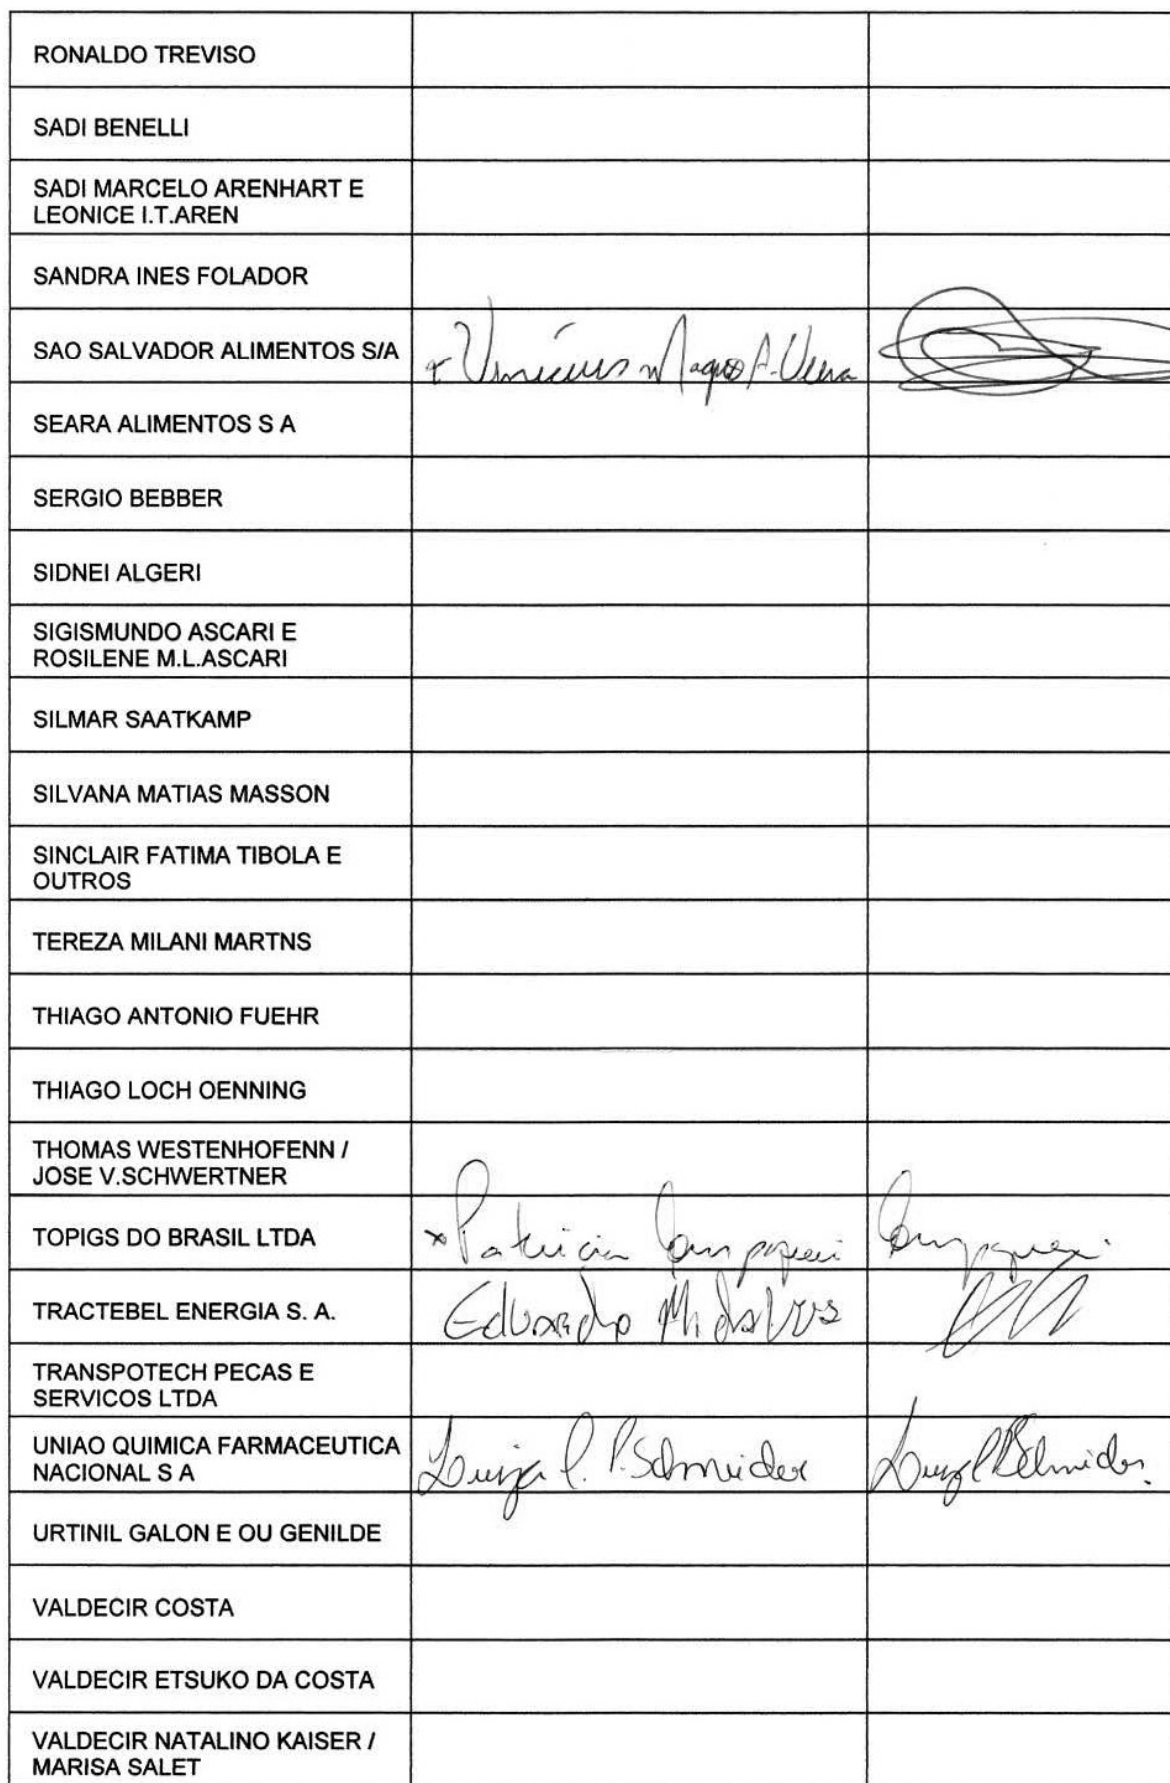 RONALDO TREVISO
SADI BENELLI
SADI MARCELO ARENHART E
LEONICE I.T.AREN
SANDRA INES FOLADOR
SAO SALVADOR ALIMENTOS S/A
Vinicius
SEARA ALIMENTOS S A
SERGIO BEBBER
SIDNEI ALGERI
SIGISMUNDO ASCARI E
ROSILENE M.L.ASCARI
SILMAR SAATKAMP
SILVANA MATIAS MASSON
SINCLAIR FATIMA TIBOLA E
OUTROS
TEREZA MILANI MARTNS
THIAGO ANTONIO FUEHR
THIAGO LOCH OENNING
THOMAS WESTENHOFENN /
JOSE V.SCHWERTNER
TOPIGS DO BRASIL LTDA
Patricia
TRACTEBEL ENERGIA S. A.
Eduardo
TRANSPOTECH PECAS E
SERVICOS LTDA
UNIAO QUIMICA FARMACEUTICA
NACIONAL S A
Luiza C. P. Schneider
URTINIL GALON E OU GENILDE
VALDECIR COSTA
VALDECIR ETSUKO DA COSTA
VALDECIR NATALINO KAISER /
MARISA SALET